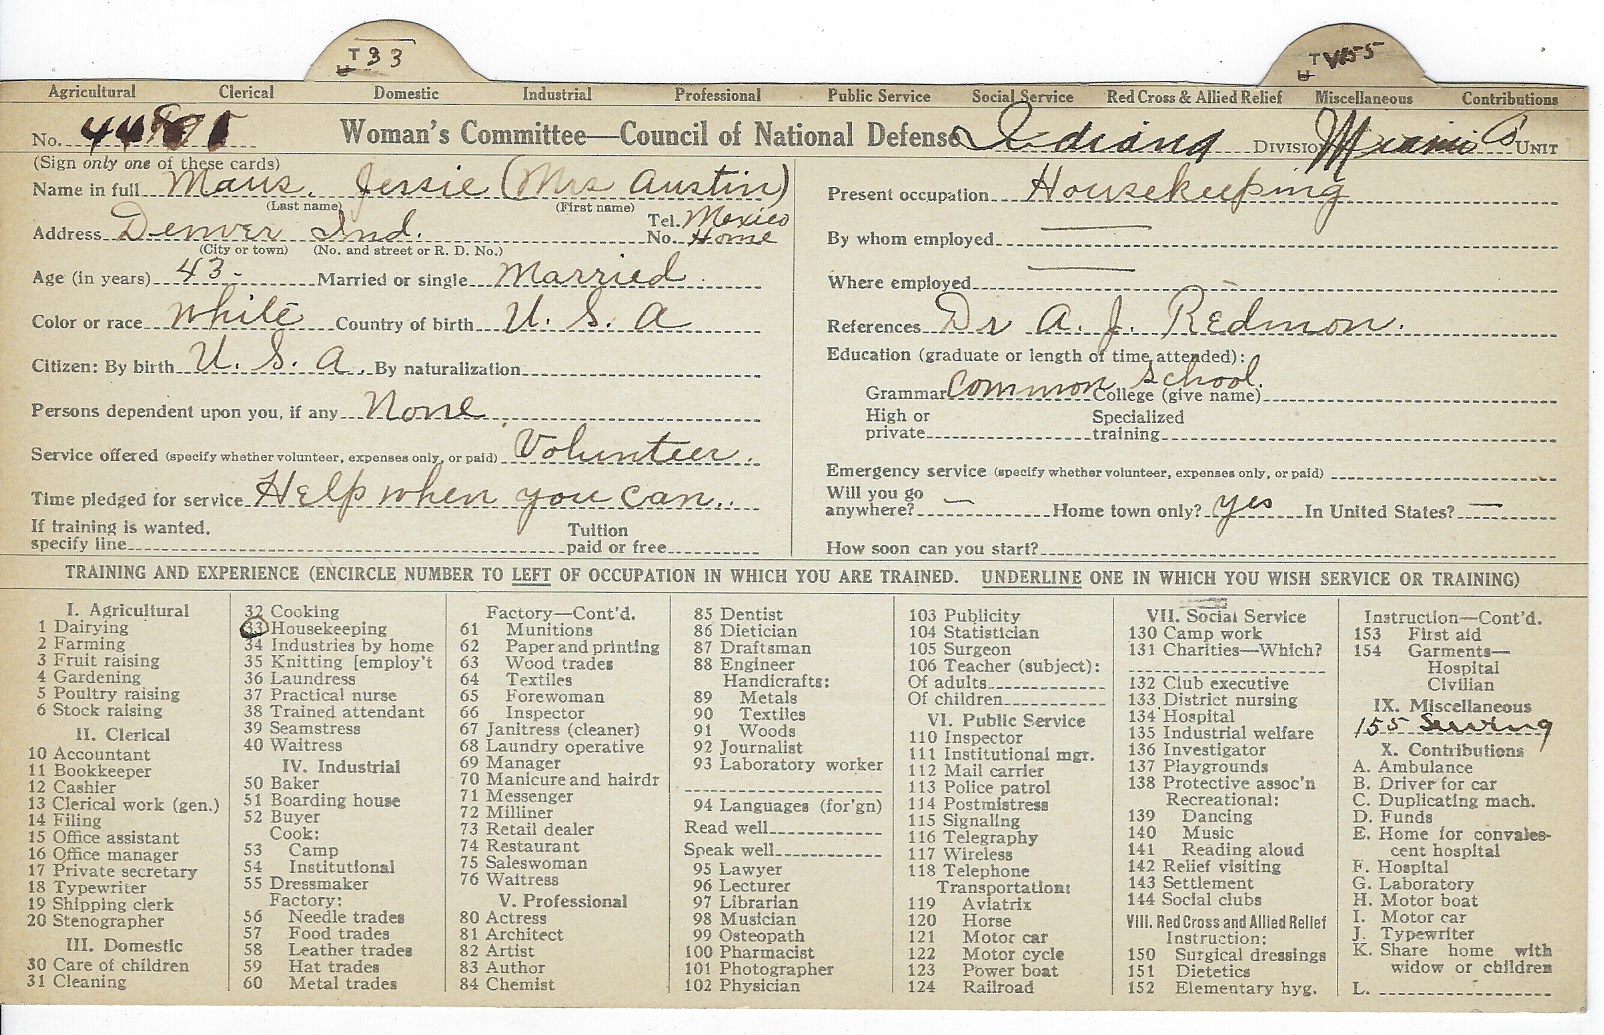 T 33
U
T V155
U
Agricultural Clerical Domestic Industrial Professional Public Service Social Service Red Cross & Allied Relief Miscellaneous Contributions
No. Woman's Committee—Council of National Defense Indiana Division Miami Unit
(Sign only one of these cards)
Name in full Maus. Jessie (Mrs Austin)
(Last name) (First name)
Address Denver Ind. Tel. No. Mexico Home
(City or town) (No. and street or R. D. No.)
Age (in years) 43- Married or single Married.
Color or race white Country of birth U. S. A
Citizen: By birth U. S. A. By naturalization
Persons dependent upon you, if any None
Service offered (specify whether volunteer, expenses only, or paid) Volunteer.
Time pledged for service Help when you can.
If training is wanted, specify line Tuition paid or free
Present occupation Housekeeping
By whom employed —
Where employed —
References Dr A. J. Redmon.
Education (graduate or length of time attended):
Grammar Common School. College (give name)
High or private Specialized training
Emergency service (specify whether volunteer, expenses only, or paid)
Will you go anywhere? — Home town only? yes In United States? —
How soon can you start?
TRAINING AND EXPERIENCE (ENCIRCLE NUMBER TO LEFT OF OCCUPATION IN WHICH YOU ARE TRAINED. UNDERLINE ONE IN WHICH YOU WISH SERVICE OR TRAINING)
I. Agricultural
1 Dairying
2 Farming
3 Fruit raising
4 Gardening
5 Poultry raising
6 Stock raising
II. Clerical
10 Accountant
11 Bookkeeper
12 Cashier
13 Clerical work (gen.)
14 Filing
15 Office assistant
16 Office manager
17 Private secretary
18 Typewriter
19 Shipping clerk
20 Stenographer
III. Domestic
30 Care of children
31 Cleaning
32 Cooking
33 Housekeeping
34 Industries by home
35 Knitting [employ't
36 Laundress
37 Practical nurse
38 Trained attendant
39 Seamstress
40 Waitress
IV. Industrial
50 Baker
51 Boarding house
52 Buyer
Cook:
53 Camp
54 Institutional
55 Dressmaker
Factory:
56 Needle trades
57 Food trades
58 Leather trades
59 Hat trades
60 Metal trades
Factory—Cont'd.
61 Munitions
62 Paper and printing
63 Wood trades
64 Textiles
65 Forewoman
66 Inspector
67 Janitress (cleaner)
68 Laundry operative
69 Manager
70 Manicure and hairdr
71 Messenger
72 Milliner
73 Retail dealer
74 Restaurant
75 Saleswoman
76 Waitress
V. Professional
80 Actress
81 Architect
82 Artist
83 Author
84 Chemist
85 Dentist
86 Dietician
87 Draftsman
88 Engineer
Handicrafts:
89 Metals
90 Textiles
91 Woods
92 Journalist
93 Laboratory worker
94 Languages (for'gn)
Read well
Speak well
95 Lawyer
96 Lecturer
97 Librarian
98 Musician
99 Osteopath
100 Pharmacist
101 Photographer
102 Physician
103 Publicity
104 Statistician
105 Surgeon
106 Teacher (subject):
Of adults
Of children
VI. Public Service
110 Inspector
111 Institutional mgr.
112 Mail carrier
113 Police patrol
114 Postmistress
115 Signaling
116 Telegraphy
117 Wireless
118 Telephone
Transportation:
119 Aviatrix
120 Horse
121 Motor car
122 Motor cycle
123 Power boat
124 Railroad
VII. Social Service
130 Camp work
131 Charities—Which?
132 Club executive
133 District nursing
134 Hospital
135 Industrial welfare
136 Investigator
137 Playgrounds
138 Protective assoc'n
Recreational:
139 Dancing
140 Music
141 Reading aloud
142 Relief visiting
143 Settlement
144 Social clubs
VIII. Red Cross and Allied Relief
Instruction:
150 Surgical dressings
151 Dietetics
152 Elementary hyg.
Instruction—Cont'd.
153 First aid
154 Garments—
Hospital
Civilian
IX. Miscellaneous
155 Sewing
X. Contributions
A. Ambulance
B. Driver for car
C. Duplicating mach.
D. Funds
E. Home for convales-
cent hospital
F. Hospital
G. Laboratory
H. Motor boat
I. Motor car
J. Typewriter
K. Share home with
widow or children
L.